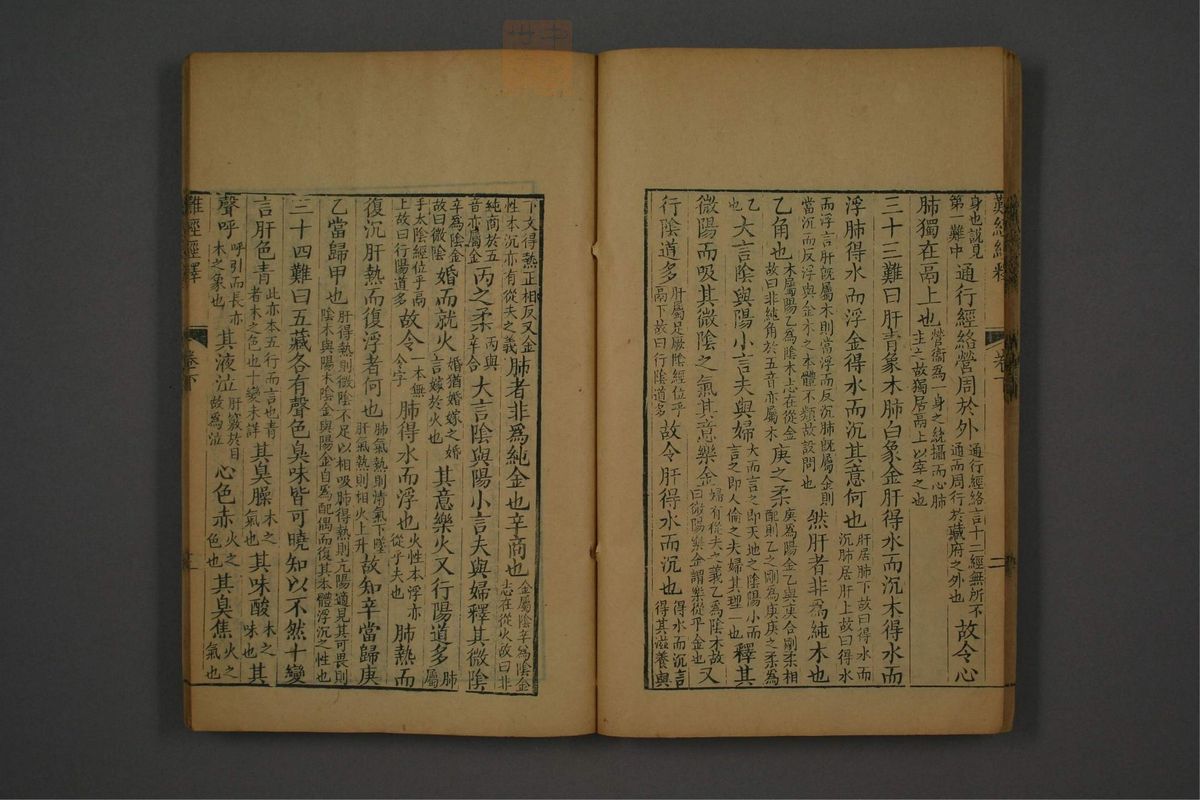 難經經釋
卷下
身也說見第一難中通行經絡營周於外通行經絡言十二經無所不通而周行於藏府之外也故令心
肺獨在鬲上也營衞為一身之統攝而心肺主之故獨居鬲上以宰之也
三十三難曰肝青象木肺白象金肝得水而沉木得水而
浮肺得水而浮金得水而沉其意何也肝居肺下故曰得水而沉肺居肝上故曰得水
而浮言肝既屬木則當浮而反沉肺既屬金則當沉而反浮與金木之本體不類故設問也然肝者非爲純木也
乙角也木屬陽乙為陰木志在從金故曰非純角於五音亦屬木庚之柔庚為陽金乙與庚合剛柔相配則乙之剛為庚庚之柔為
乙也大言陰與陽小言夫與婦大而言之即天地之陰陽小而言之即人倫之夫婦其理一也釋其
微陽而吸其微陰之氣其意樂金婦有從夫之義乙為陰木故曰微陽樂金謂樂從乎金也又
行陰道多肝屬足厥陰經位乎鬲下故曰行陰道多故令肝得水而沉也得水而沉言得其滋養與
下文得熱正相反又金性本沉亦有從夫之義肺者非爲純金也辛商也金屬陰辛為陰金志在從火故曰非
純商於五音亦屬金丙之柔丙與辛合大言陰與陽小言夫與婦釋其微陰
辛為陰金故曰微陰婚而就火婚猶婚嫁之婚言嫁於火也其意樂火又行陽道多肺屬
手太陰經位乎鬲上故曰行陽道多故令一本無令字肺得水而浮也火性本浮亦從乎夫也肺熱而
復沉肝熱而復浮者何也肺氣熱則清氣下墜肝氣熱則相火上升故知辛當歸庚
乙當歸甲也肝得熱則微陰不足以相吸肺得熱則亢陽適見其可畏則陰木與陽木陰金與陽金自為配偶而復其本體浮沉之性也
三十四難曰五藏各有聲色臭味皆可曉知以不然十變
言肝色青此亦本五行而言也青者木之色也十變未詳其臭臊木之氣也其味酸木之味也其
聲呼呼引而長亦木之象也其液泣肝竅於目故為泣心色赤火之色也其臭焦火之氣也
難經經釋
卷下